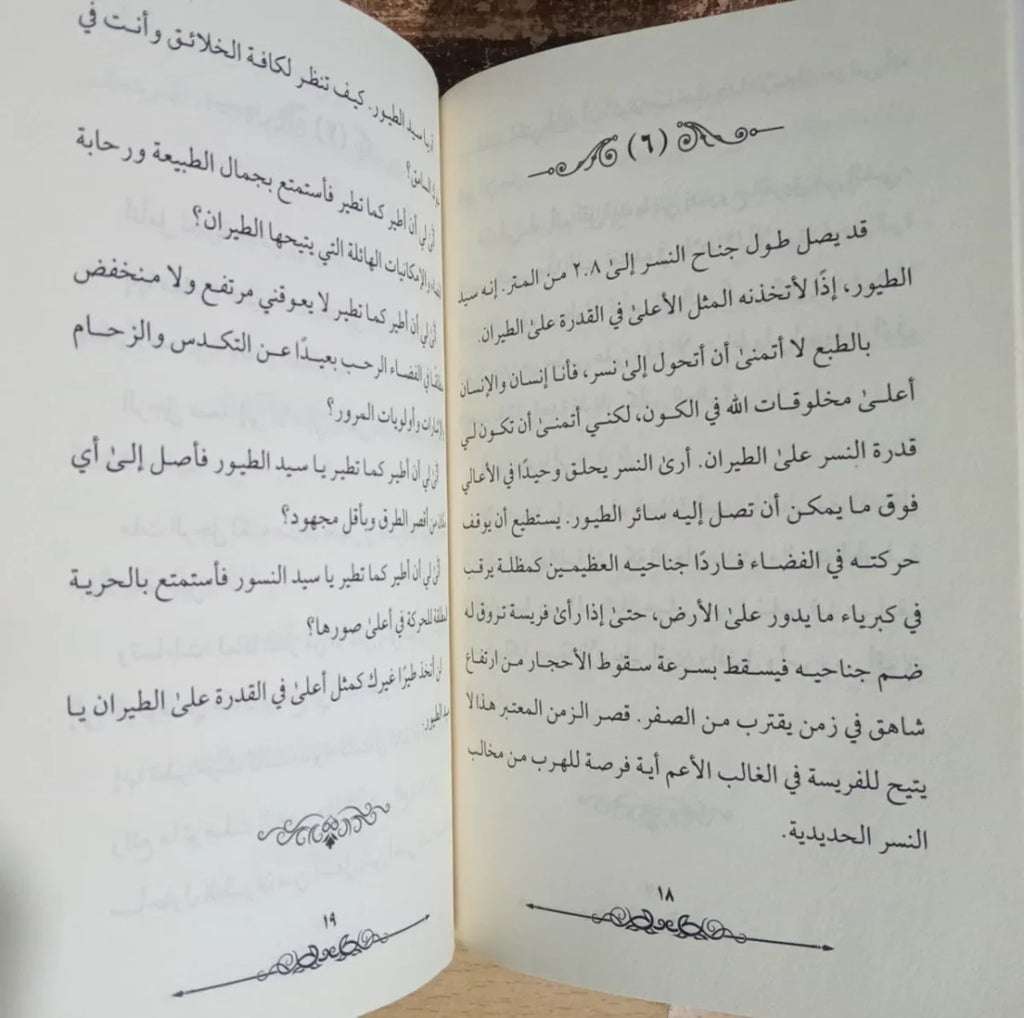 (٦)
قد يصل طول جناح النسر إلىٰ ٢.٨ من المتر. إنه سيد
الطيور، إذًا لأتخذنه المثل الأعلىٰ في القدرة علىٰ الطيران.
بالطبع لا أتمنىٰ أن أتحول إلىٰ نسر، فأنا إنسان والإنسان
أعلىٰ مخلوقات الله في الكون، لكنني أتمنىٰ أن تكون لي
قدرة النسر علىٰ الطيران. أرىٰ النسر يحلق وحيدًا في الأعالي
فوق ما يمكن أن تصل إليه سائر الطيور. يستطيع أن يوقف
حركته في الفضاء فاردًا جناحيه العظيمين كمظلة يرقب
في كبرياء ما يدور علىٰ الأرض، حتىٰ إذا رأىٰ فريسة تروق له
ضم جناحيه فيسقط بسرعة سقوط الأحجار من ارتفاع
شاهق في زمن يقترب من الصفر. قصر الزمن المعتبر هذا لا
يتيح للفريسة في الغالب الأعم أية فرصة للهرب من مخالب
النسر الحديدية.
١٨
يا سيد الطيور. كيف تنظر لكافة الخلائق وأنت في
لي أن أطير كما تطير فأستمتع بجمال الطبيعة ورحابة
والإمكانيات الهائلة التي يتيحها الطيران؟
لي أن أطير كما تطير لا يعوقني مرتفع ولا منخفض
في الفضاء الرحب بعيدًا عن التكدس والزحام
وأولويات المرور؟
لي أن أطير كما تطير يا سيد الطيور فأصل إلىٰ أي
من أقصر الطرق وبأقل مجهود؟
لي أن أطير كما تطير يا سيد النسور فأستمتع بالحرية
للحركة في أعلىٰ صورها؟
لن أتخذ طيرًا غيرك كمثل أعلىٰ في القدرة علىٰ الطيران يا
الطيور.
١٩